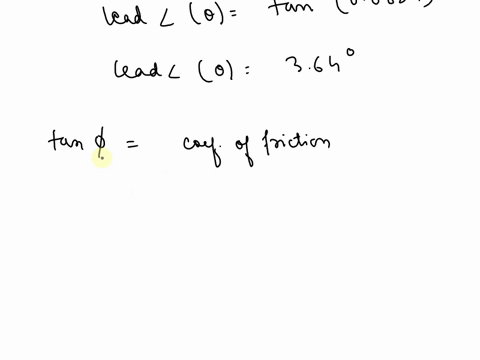 lead ∠ (θ) = tan (0.0
lead ∠ (θ) = 3.64°
tan ϕ = coef. of friction